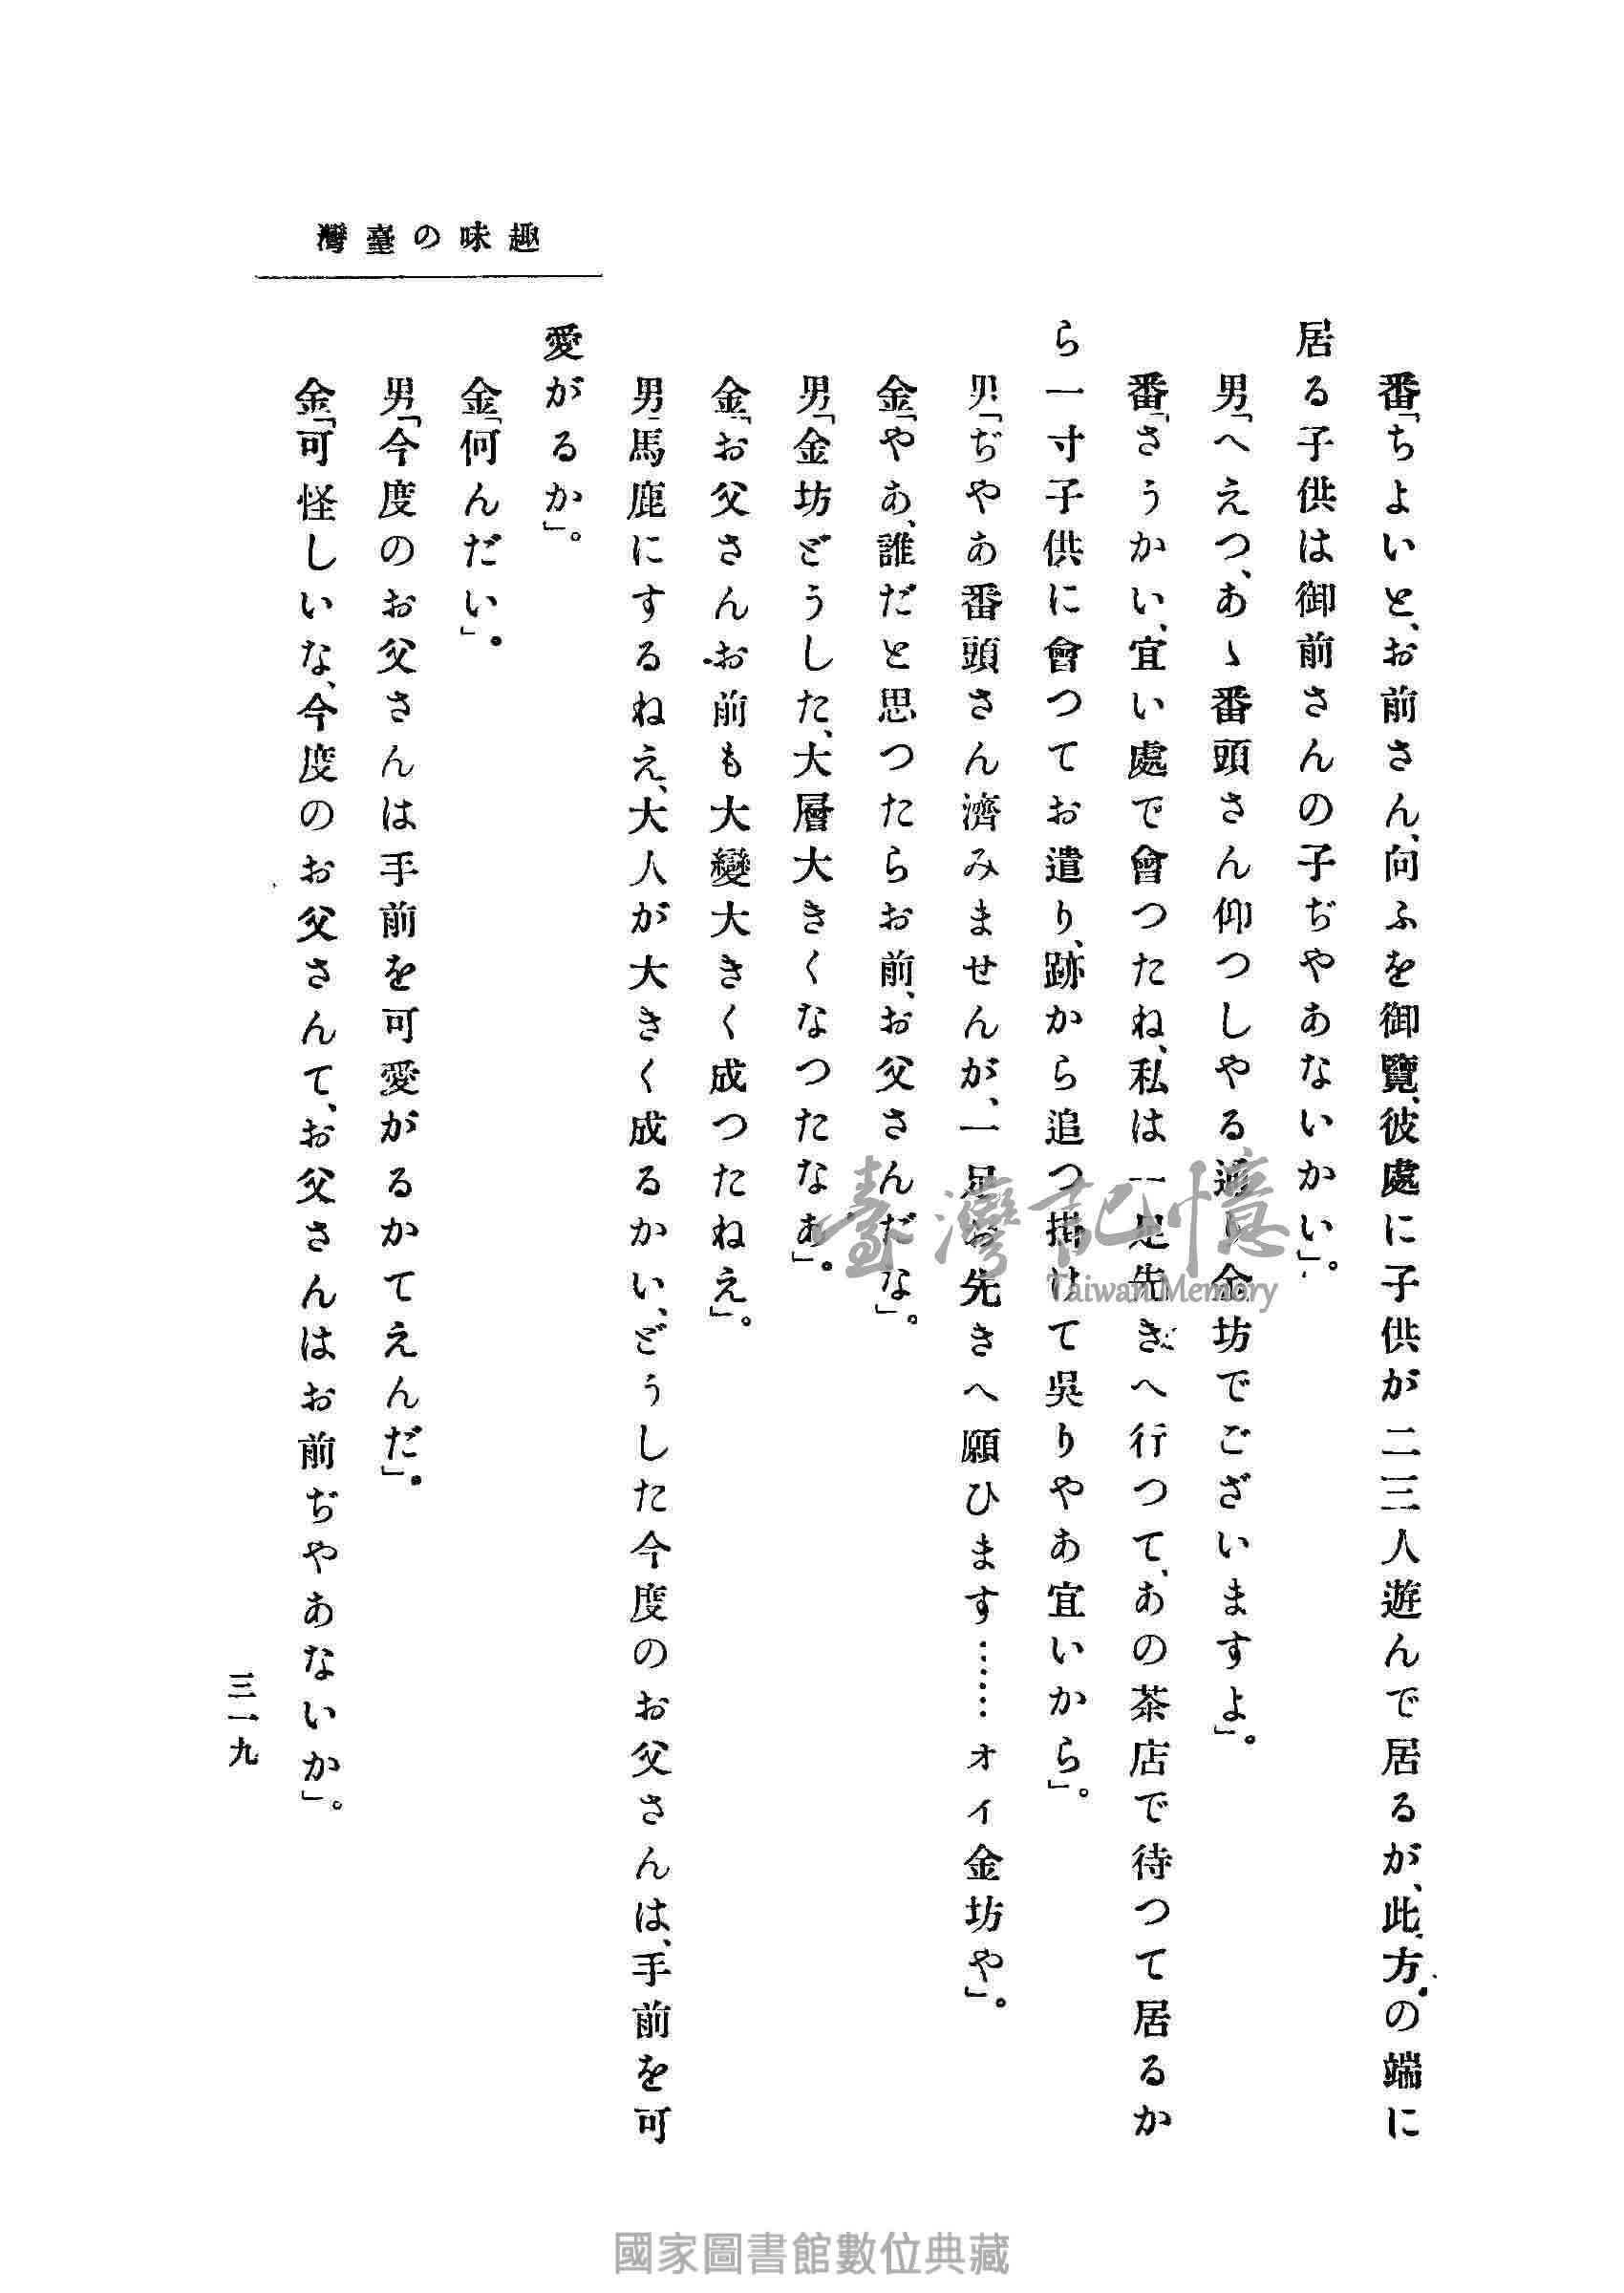 灣臺の味趣
番「ちよいと、お前さん、向ふを御覽、彼處に子供が二三人遊んで居るが、此方の端に
居る子供は御前さんの子ぢやあないかい」。
男「へえつ、あゝ番頭さん仰つしやる通り金坊でございますよ」。
番「さうかい、宜い處で會つたね、私は一足先きへ行つて、あの茶店で待つて居るか
ら一寸子供に會つてお遣り、跡から追つ掛けて吳りやあ宜いから」。
男「ぢやあ番頭さん濟みませんが、一足お先きへ願ひます……オイ金坊や」。
金「やあ、誰だと思つたらお前、お父さんだな」。
男「金坊どうした、大層大きくなつたなあ」。
金「お父さんお前も大變大きく成つたねえ」。
男「馬鹿にするねえ、大人が大きく成るかい、どうした今度のお父さんは、手前を可
愛がるか」。
金「何んだい」。
男「今度のお父さんは手前を可愛がるかてえんだ」。
金「可怪しいな、今度のお父さんて、お父さんはお前ぢやあないか」。
三一九
臺灣記憶
Taiwan Memory
國家圖書館數位典藏